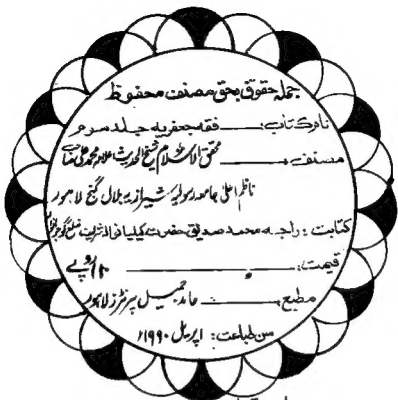 جملہ حقوق بحق مصنف محفوظ
نام کتاب: ــــــ فقہ جعفریہ جلد سوم
مصنف ــــــ محقق الاسلام شیخ الحدیث علامہ محمد علی صاحب
ناظم اعلیٰ جامعہ رسولیہ شیرازیہ بلال گنج لاہور
کتابت: راجہ محمد صدیق حضرت کیلیانوالہ شریف ضلع گوجرانوالہ
قیمت: ــــــ روپے
مطبع: ــــــ حامد جمیل پرنٹرز لاہور
سن طباعت: اپریل ۱۹۹۰ء